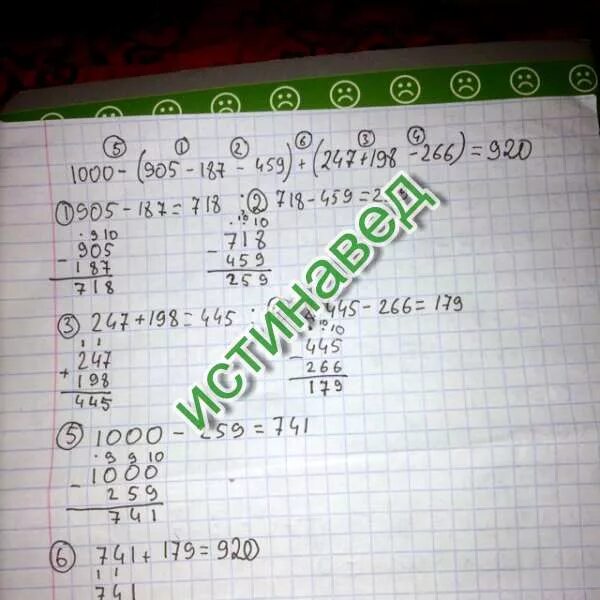 ⑤ ① ② ⑥ ③ ④
1000-(905-187-459)+(247+198-266)=920
① 905-187=718 ; ② 718-459=2
. 9 10
- 905
187
718
. 10
- 718
459
259
③ 247+198=445 ; 445-266=179
1 1
+ 247
198
445
10
- 445
266
179
⑤ 1000-259=741
. 9 9 10
- 1000
259
741
⑥ 741+179=920
1 1
741
ИСТИНАВЕД